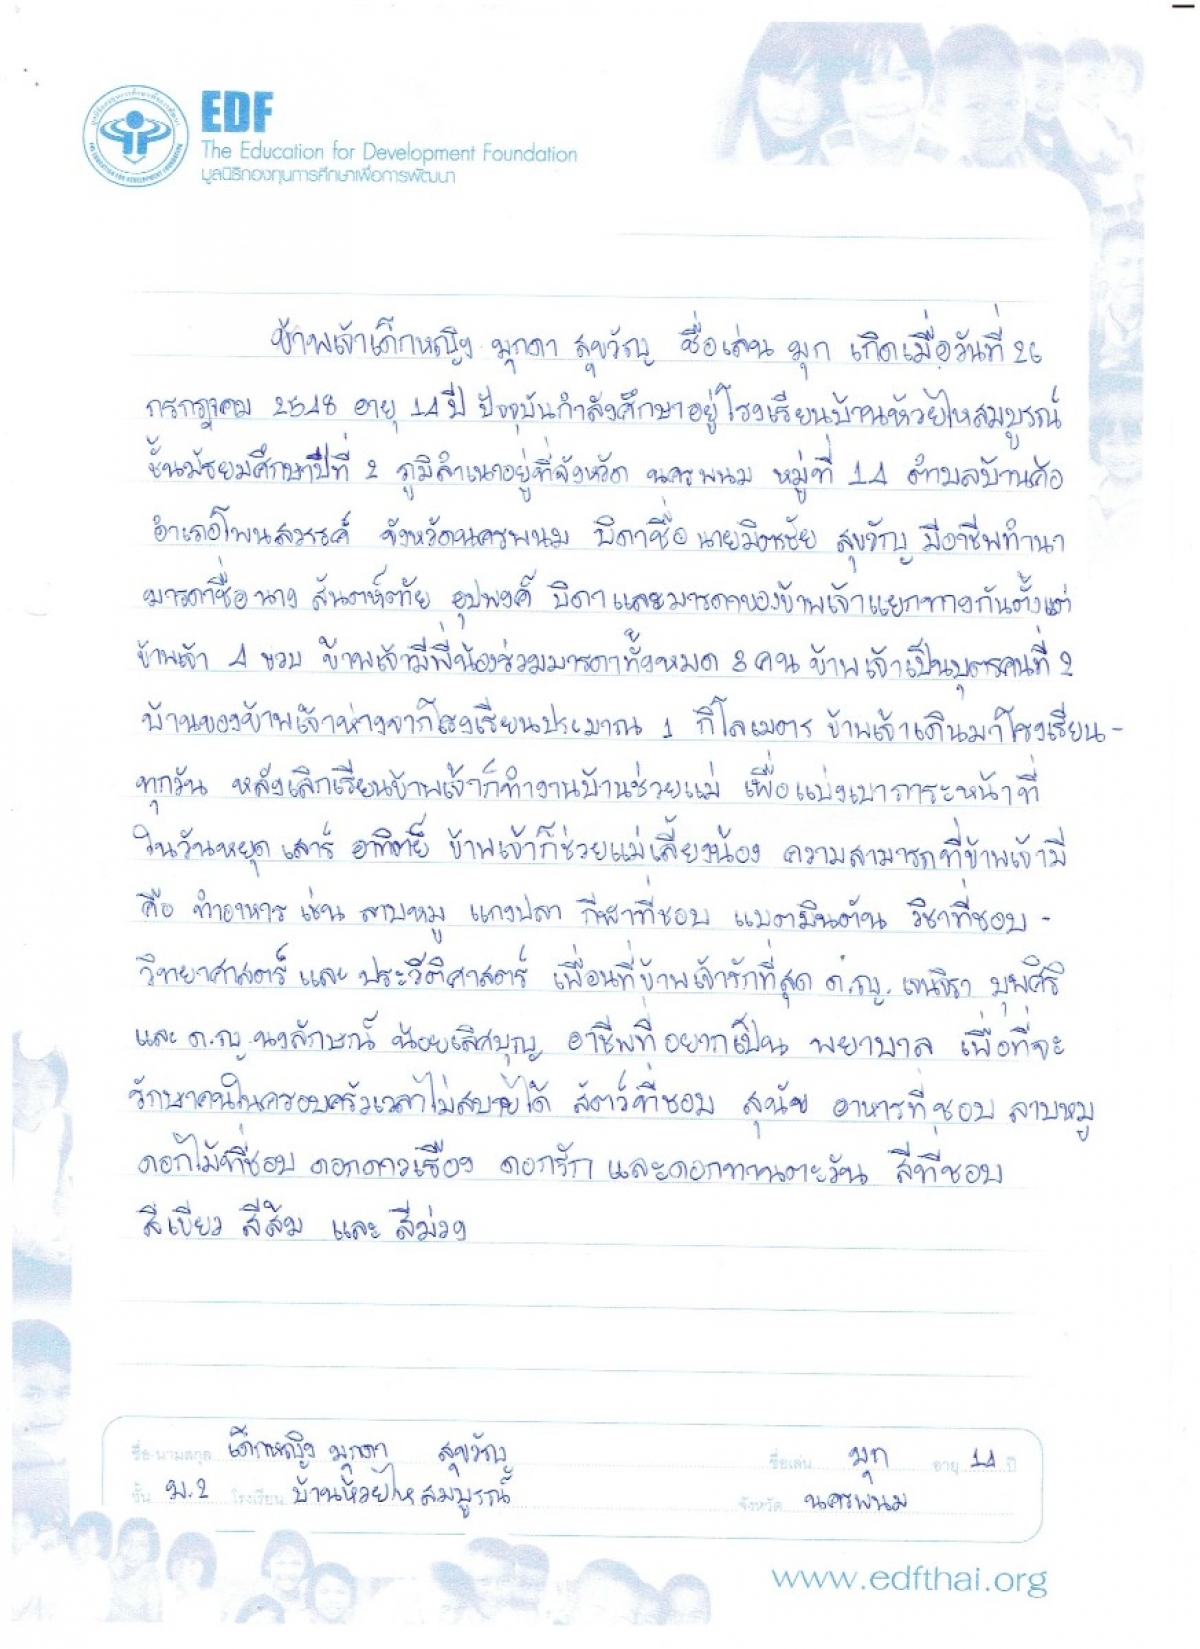 EDF
The Education for Development Foundation
มูลนิธิกองทุนการศึกษาเพื่อการพัฒนา
ข้าพเจ้าเด็กหญิง มุกดา สุขวัญ ชื่อเล่น มุก เกิดเมื่อวันที่ 26
กรกฎาคม 2548 อายุ 14 ปี ปัจจุบันกำลังศึกษาอยู่โรงเรียนบ้านห้วยไหสมบูรณ์
ชั้นมัธยมศึกษาปีที่ 2 ภูมิลำเนาอยู่ที่จังหวัด นครพนม หมู่ที่ 14 ตำบลบ้านค้อ
อำเภอโพนสวรรค์ จังหวัดนครพนม บิดาชื่อ นายมิตรชัย สุขวัญ มีอาชีพทำนา
มารดาชื่อ นาง สันตห์ทัย อุปพงค์ บิดาและมารดาของข้าพเจ้าแยกทางกันตั้งแต่
ข้าพเจ้า 4 ขวบ ข้าพเจ้ามีพี่น้องร่วมมารดาทั้งหมด 3 คน ข้าพเจ้าเป็นบุตรคนที่ 2
บ้านของข้าพเจ้าห่างจากโรงเรียนประมาณ 1 กิโลเมตร ข้าพเจ้าเดินมาโรงเรียน-
ทุกวัน หลังเลิกเรียนข้าพเจ้าก็ทำงานบ้านช่วยแม่ เพื่อแบ่งเบาภาระหน้าที่
ในวันหยุด เสาร์ อาทิตย์ ข้าพเจ้าก็ช่วยแม่เลี้ยงน้อง ความสามารถที่ข้าพเจ้ามี
คือ ทำอาหาร เช่น ลาบหมู แกงปลา กีฬาที่ชอบ แบตมินตัน วิชาที่ชอบ -
วิทยาศาสตร์ และ ประวัติศาสตร์ เพื่อนที่ข้าพเจ้ารักที่สุด ด.ญ. เจนจิรา บุพศิริ
และ ด.ญ. นงลักษณ์ น้อยเลิศบุญ อาชีพที่อยากเป็น พยาบาล เพื่อที่จะ
รักษาคนในครอบครัวเวลาไม่สบายได้ สัตว์ที่ชอบ สุนัข อาหารที่ชอบ ลาบหมู
ดอกไม้ที่ชอบ ดอกดาวเรือง ดอกรัก และดอกทานตะวัน สีที่ชอบ
สีเขียว สีส้ม และ สีม่วง
ชื่อ-นามสกุล เด็กหญิง มุกดา สุขวัญ ชื่อเล่น มุก อายุ 14 ปี
ชั้น ม.2 โรงเรียน บ้านห้วยไหสมบูรณ์ จังหวัด นครพนม
www.edfthai.org